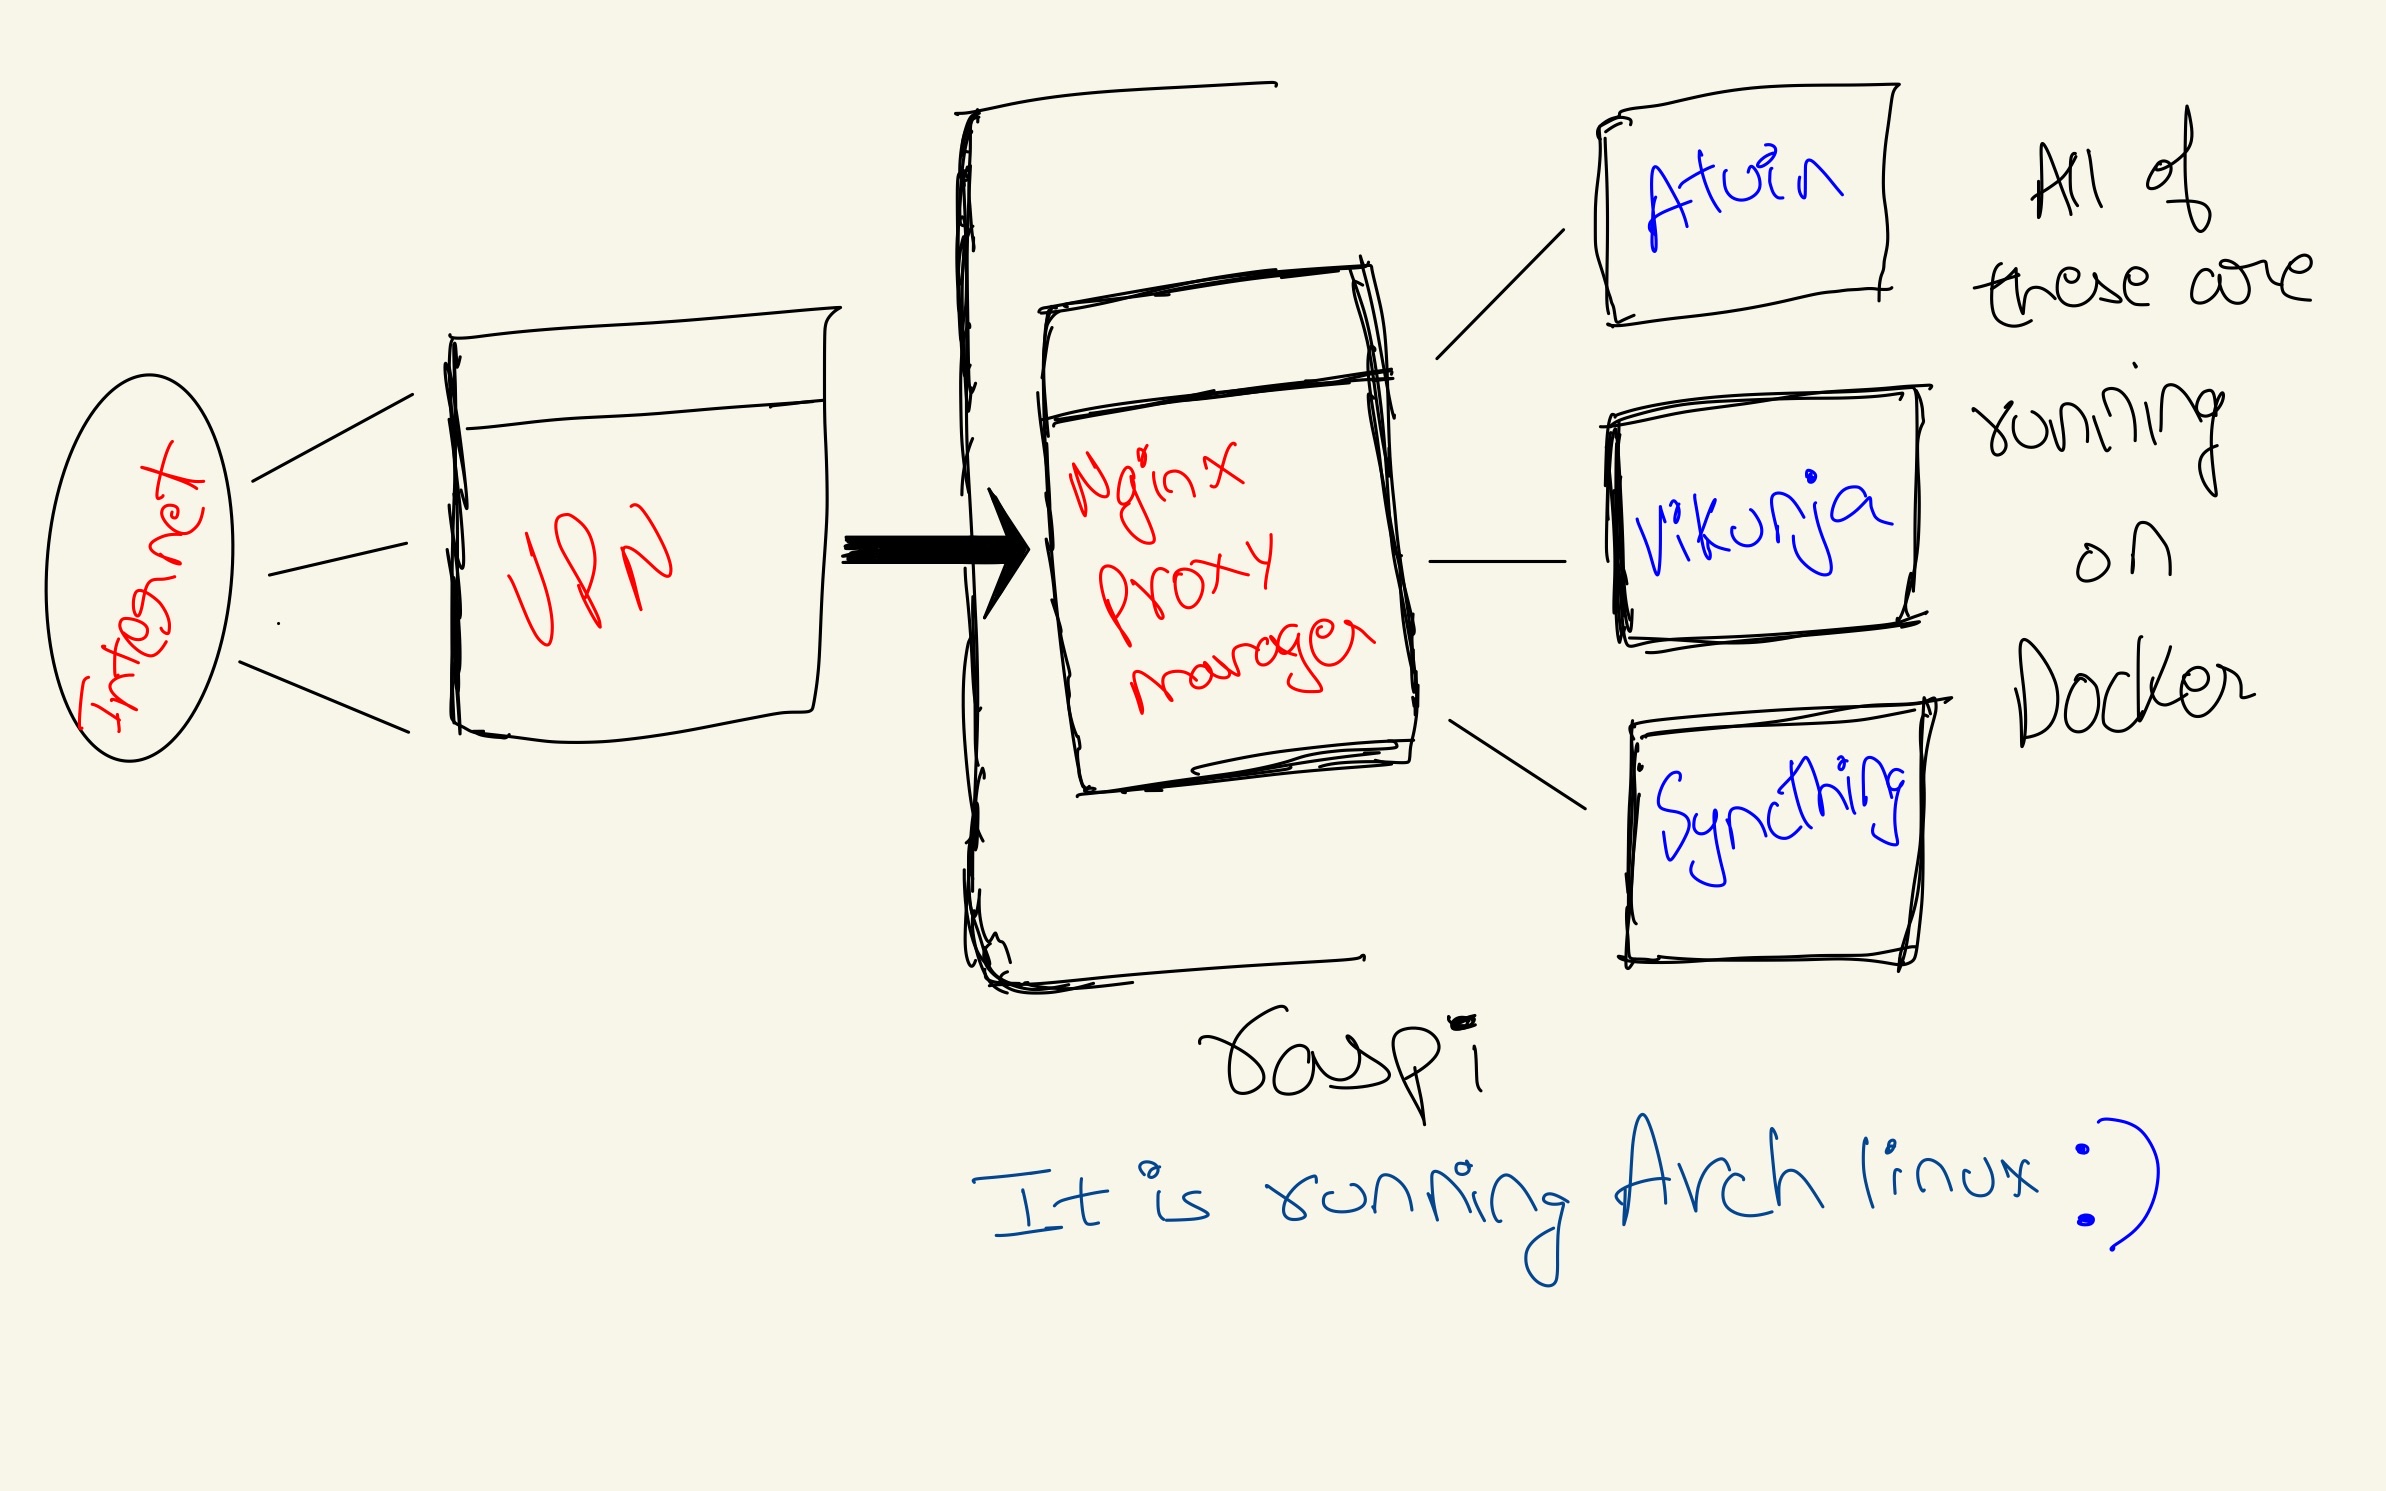 Internet
VPN
Nginx
Proxy
manager
Atuin
Vikunja
Syncthing
All of
these are
running
on
Docker
raspi
It is running Arch linux :)